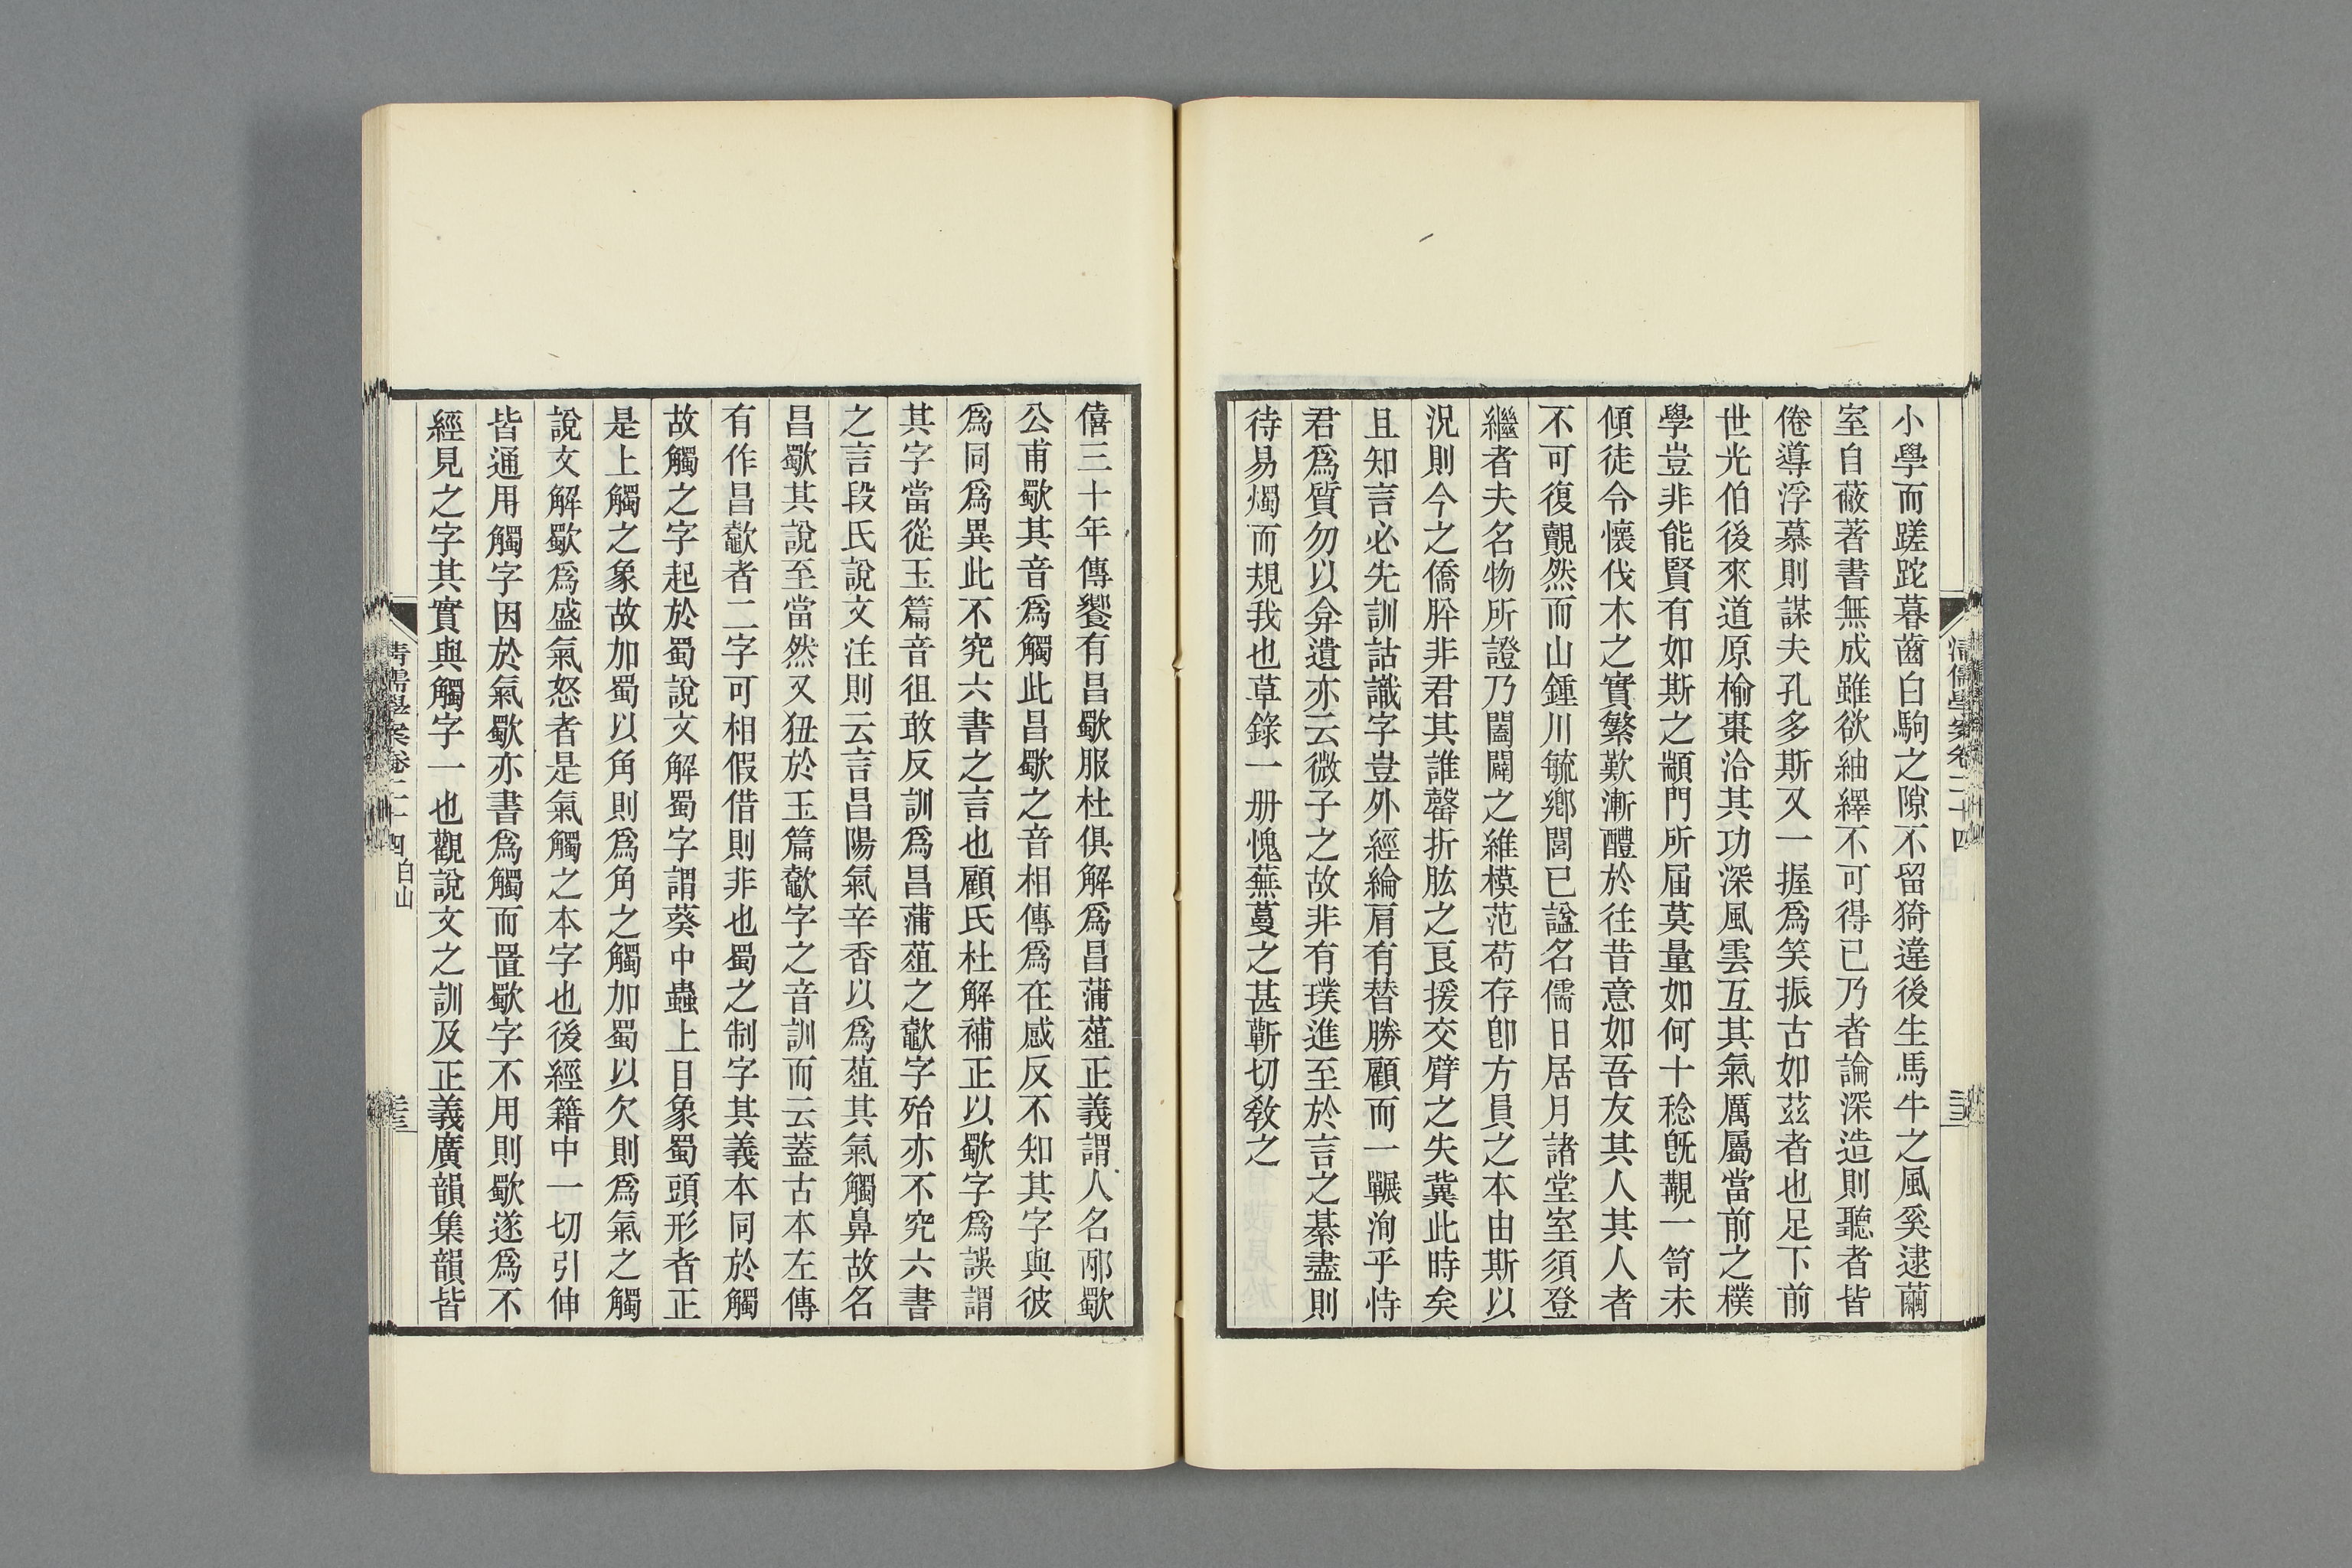 小學而蹉跎暮齒白駒之隙不留猗違後生馬牛之風奚逮繭
室自蔽著書無成雖欲紬繹不可得已乃者論深造則聽者皆
倦導浮慕則謀夫孔多斯又一握爲笑振古如茲者也足下前
世光伯後來道原榆棗洽其功深風雲互其氣厲屬當前之樸
學豈非能賢有如斯之顓門所屆莫量如何十稔旣覯一笥未
傾徒令懷伐木之實繁歎漸醴於往昔意如吾友其人其人者
不可復覿然而山鍾川毓鄉閭已謚名儒日居月諸堂室須登
繼者夫名物所證乃闔闢之維模范苟存卽方員之本由斯以
況則今之僑肸非君其誰罄折肱之良援交臂之失冀此時矣
且知言必先訓詁識字豈外經綸肩有替勝顧而一囅洵乎恃
君爲質勿以弇遺亦云微子之故非有璞進至於言之綦盡則
待易燭而規我也草錄一册愧蕪蔓之甚蘄切敎之
僖三十年傳饗有昌歜服杜俱解爲昌蒲菹正義謂人名邴歜
公甫歜其音爲觸此昌歜之音相傳爲在感反不知其字與彼
爲同爲異此不究六書之言也顧氏杜解補正以歜字爲誤謂
其字當從玉篇音徂敢反訓爲昌蒲菹之歜字殆亦不究六書
之言段氏說文注則云言昌陽氣辛香以爲菹其氣觸鼻故名
昌歜其說至當然又狃於玉篇歜字之音訓而云蓋古本左傳
有作昌歜者二字可相假借則非也蜀之制字其義本同於觸
故觸之字起於蜀說文解蜀字謂葵中蟲上目象蜀頭形者正
是上觸之象故加蜀以角則爲角之觸加蜀以欠則爲氣之觸
說文解歜爲盛氣怒者是氣觸之本字也後經籍中一切引伸
皆通用觸字因於氣歜亦書爲觸而置歜字不用則歜遂爲不
經見之字其實與觸字一也觀說文之訓及正義廣韻集韻皆
清儒學案卷二十四 白山